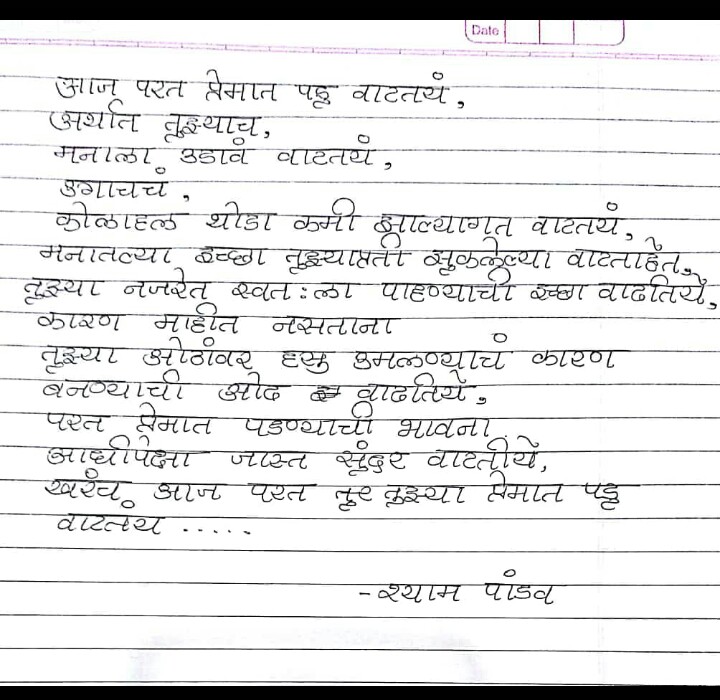 Date
आज परत प्रेमात पडू वाटतयं,
अर्थात तुझ्याच,
मनाला उडावं वाटतयं,
उगाचचं,
कोळाहल थोडा कमी झाल्यागत वाटतयं,
मनातल्या इच्छा तुझ्याप्रती झुकलेल्या वाटताहेत,
तुझ्या नजरेत स्वत:ला पाहण्याची इच्छा वाढतियें,
कारण माहीत नसताना
तुझ्या ओठांवर हसु उमलण्याचं कारण
बनण्याची ओढ वाढतियें,
परत प्रेमात पडण्याची भावना
आधीपेक्षा जास्त सुंदर वाटतीयें,
खरंच आज परत तुझ्या प्रेमात पडू
वाटतंय .....
-श्याम पांडव